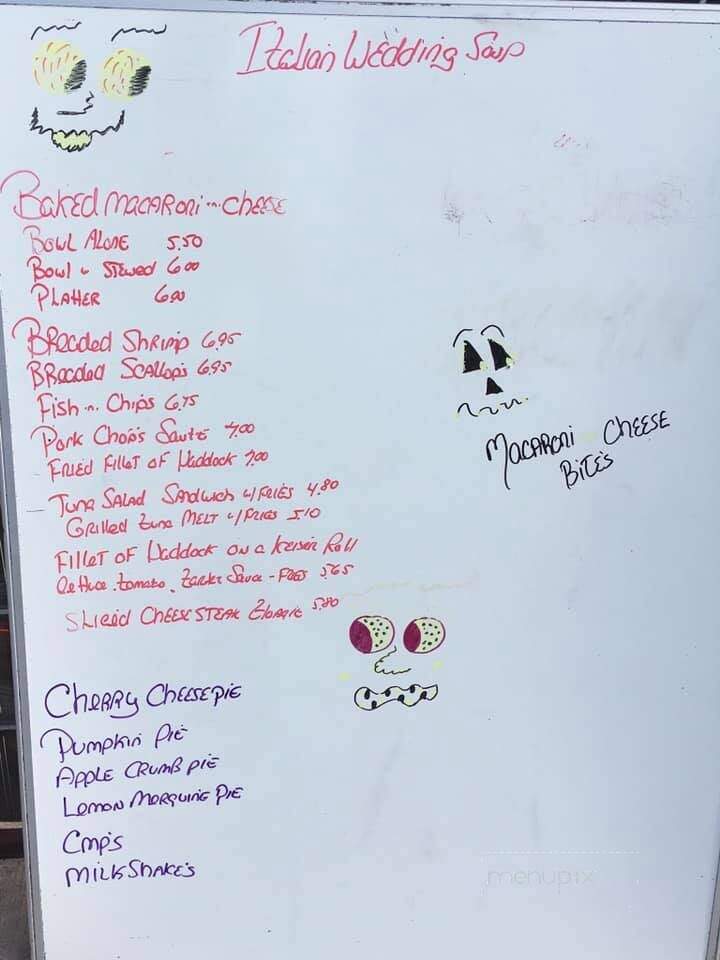 Italian Wedding Soup
Baked Macaroni n Cheese
Bowl Alone 5.50
Bowl w Stewed 6.00
Platter 6.00
Breaded Shrimp 6.95
Breaded Scallops 6.95
Fish n Chips 6.75
Pork Chops Sauté 7.00
Fried Fillet of Haddock 7.00
Tuna Salad Sandwich w/ Fries 4.80
Grilled Tuna Melt w/ Fries 5.10
Fillet of Haddock on a Keiser Roll
lettuce, tomato, Tarter Sauce - Fries 5.65
Sliced Cheese Steak 5.80
Macaroni Cheese
Bites
Cherry Cheese pie
Pumpkin Pie
Apple Crumb pie
Lemon Merquine Pie
Cmp's
Milk Shake's
menupix